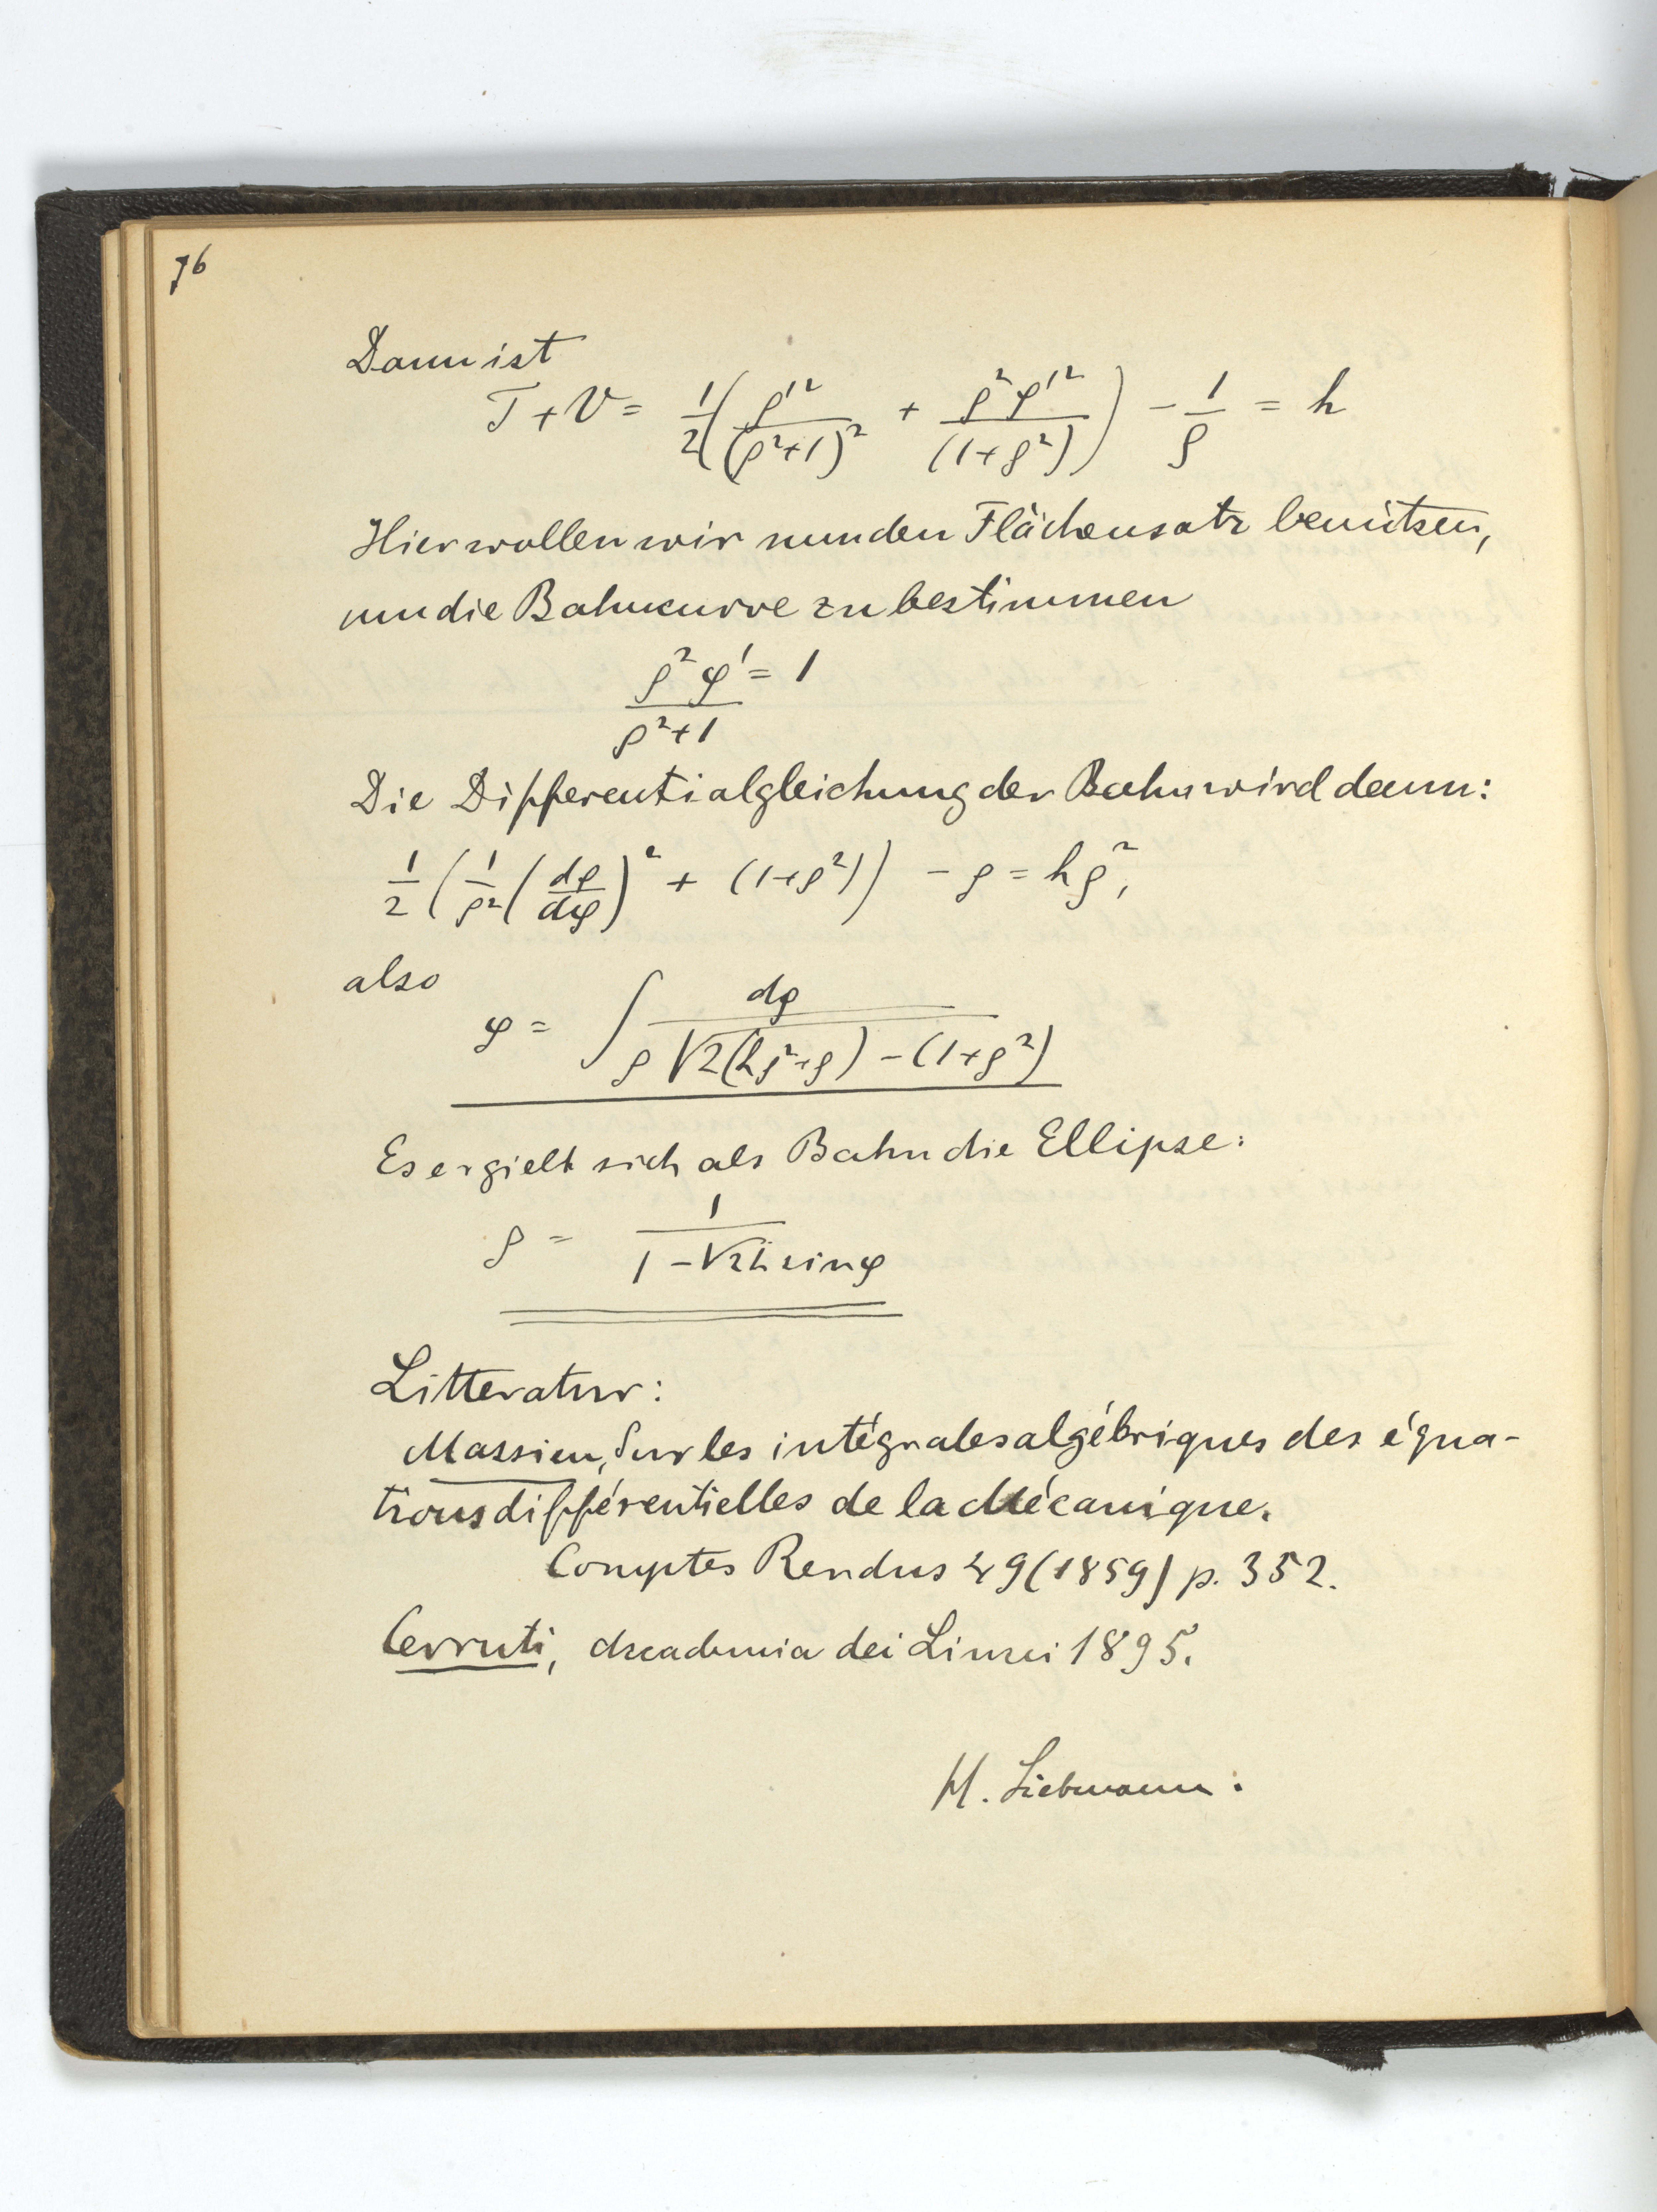 76
Dann ist
T + V = 1/2 ( ρ'²/(ρ²+1)² + ρ²φ'²/(1+ρ²) ) - 1/ρ = h
Hier wollen wir nun den Flächensatz benützen,
um die Bahncurve zu bestimmen
ρ²φ'/(ρ²+1) = 1
Die Differentialgleichung der Bahn wird dann:
1/2 ( 1/ρ² ( dρ/dφ )² + (1+ρ²) ) - ρ = hρ²,
also
φ = ∫ dρ / ρ √2(hρ²+ρ) - (1+ρ²)
Es ergiebt sich als Bahn die Ellipse:
ρ = 1 / (1 - √2h sin φ)
Litteratur:
Massieu, Sur les intégrales algébriques des équa-
tions différentielles de la Mécanique.
Comptes Rendus 49 (1859) p. 352.
Cerruti, Accademia dei Lincei 1895.
H. Liebmann.